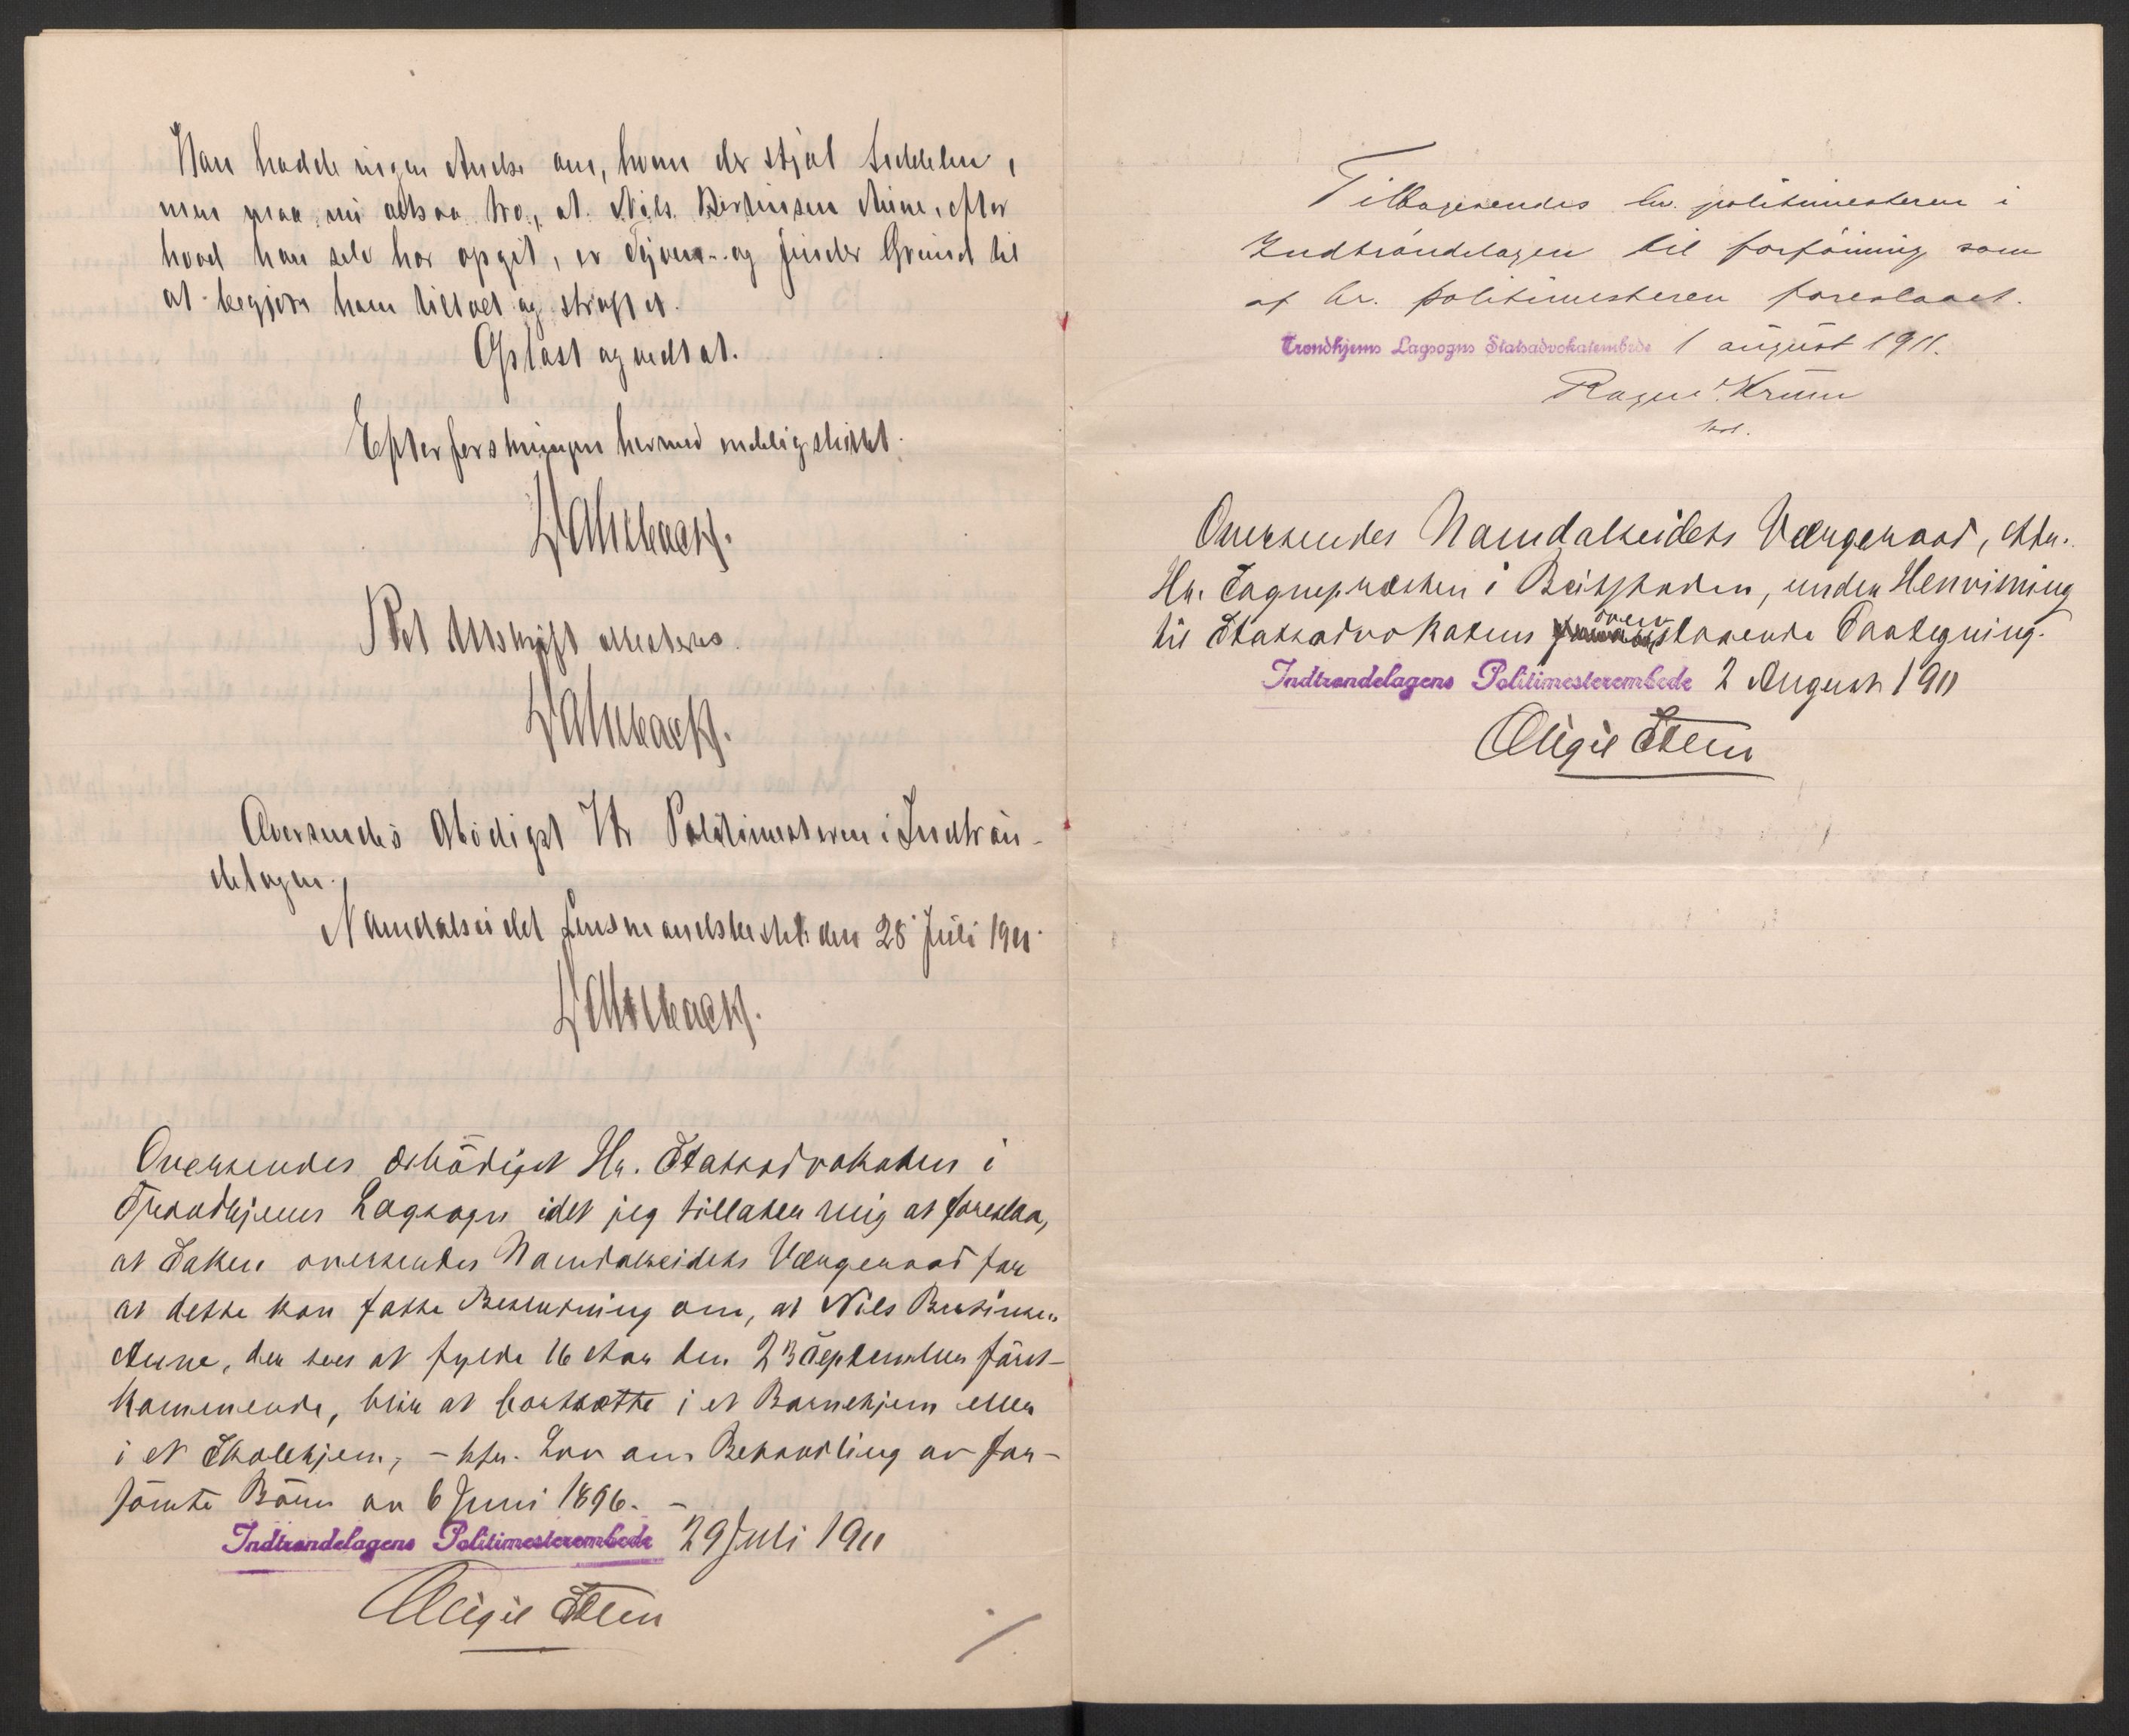 Han hadde ingen Anelse om, hvem der stjal Seddelen,
men maa nu altsaa tro, at Nils Bertinsen Aune, efter
hvad han selv har opgit, er Tyven og finder Grund til
at begjære ham tiltalt og straffet.
Oplæst og vedtat.
Efterforskningen hermed endelig sluttet.
Ret Utskrift attesteres
Oversendes ærbödigst Hr Politimesteren i Indtrön-
delagen.
Namdalseidet Lensmandsbestill. den 28 Juli 1911.
Oversendes ærbödigst Hr. Statsadvokaten i
Trondhjems Lagsogn idet jeg tillater mig at foreslaa,
at Saken oversendes Namdalseidets Værgeraad for
at dette kan fatte Beslutning om, at Nils Bertinsen
Aune, der sees at fylde 16 Aar den 23 September först-
kommende, blir at bortsætte i et Barnehjem eller
i et Skolehjem, - kfr. Lov om Behandling av for-
sömte Börn av 6 Juni 1896. -
Indtrøndelagens Politimesterembede 29 Juli 1911
Stein
Tilbagesendes hr. politimesteren i
Indtröndelagen til forföining som
af hr. politimesteren foreslaaet.
Trondhjems Lagsogns Statsadvokatembede 1 august 1911.
Oversendes Namdalseidets Værgeraad, attn.
Hr. Sognepræsten i Beitstaden, under Henvisning
til Statsadvokatens ovenstaaende Paategning.
Indtrøndelagens Politimesterembede 2 August 1911
Stein